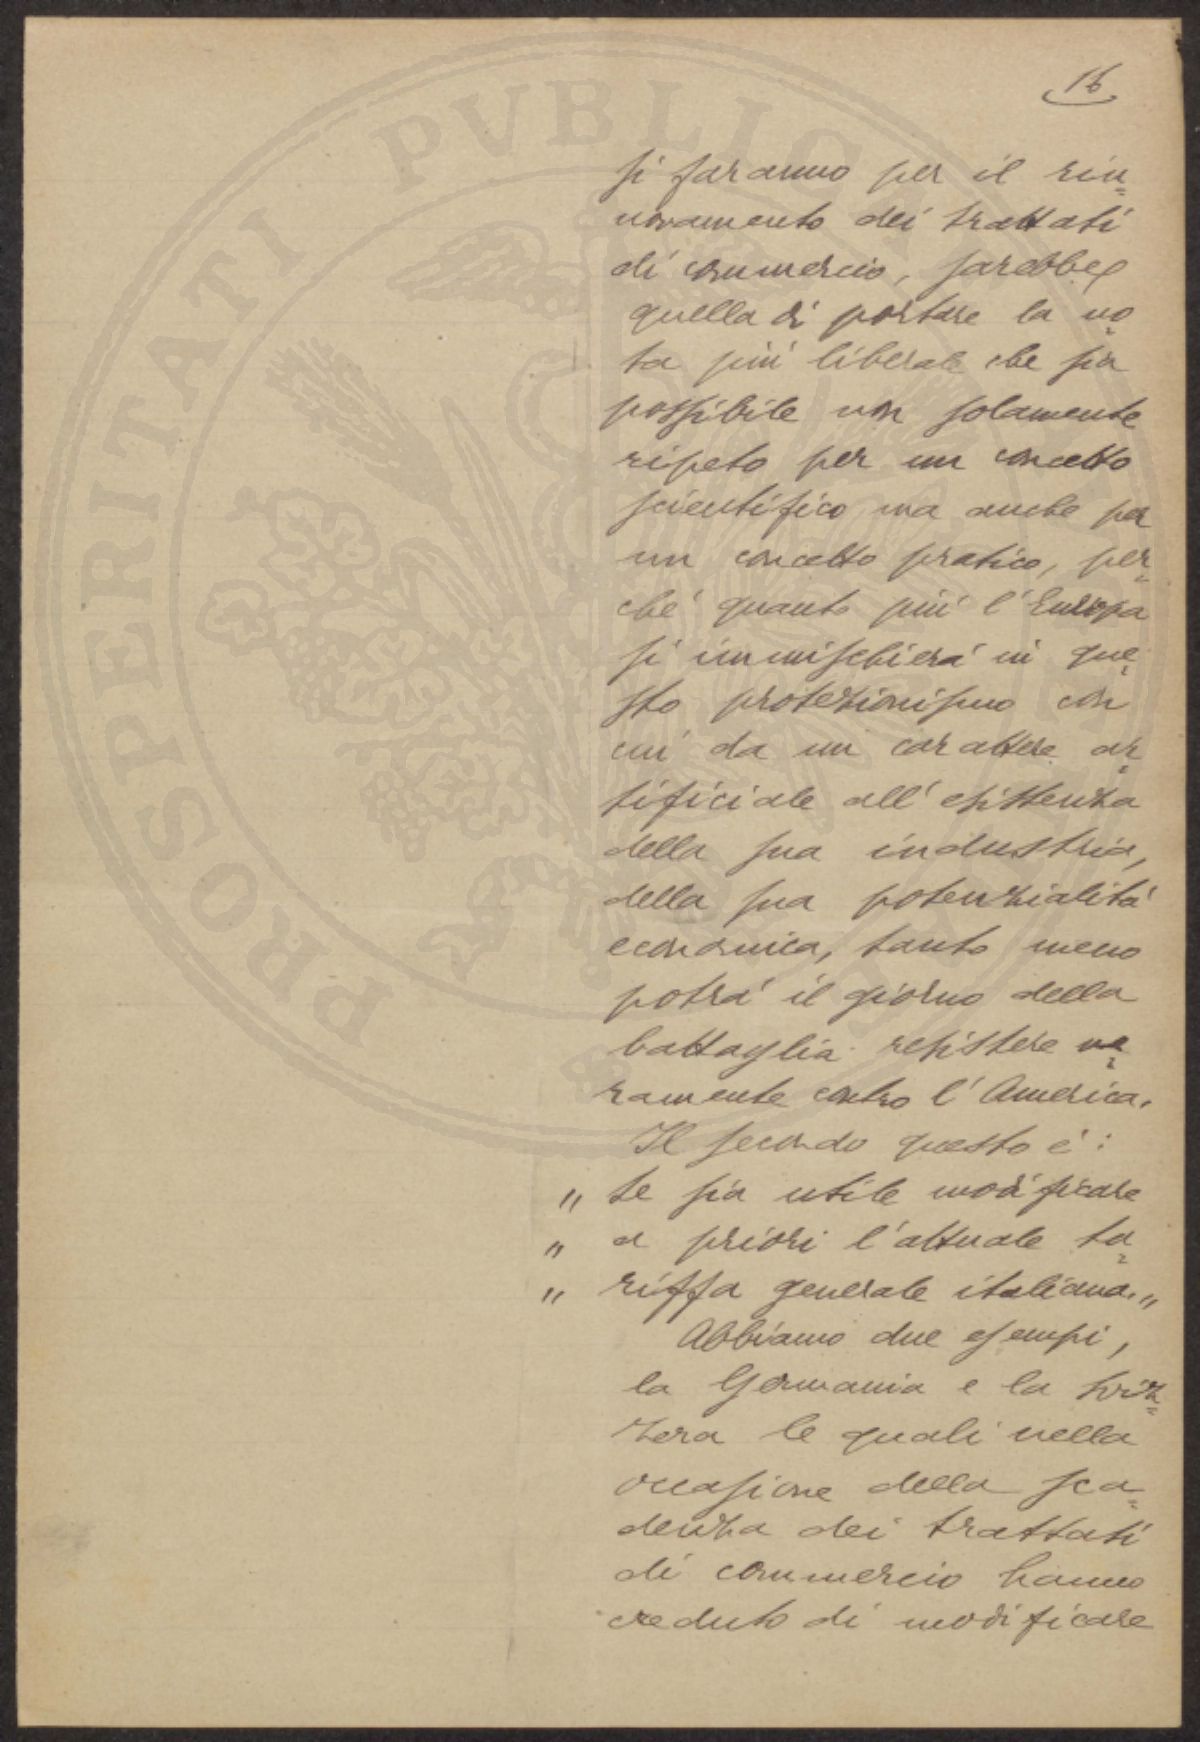 16
si faranno per il rin=
novamento dei trattati
di commercio, sarebbe
quella di portare la no=
ta più liberale che sia
possibile non solamente
ripeto per un concetto
scientifico ma anche per
un concetto pratico, per=
ché quanto più l'Europa
si immischierá in que=
sto protezionismo con
cui da un carattere ar=
tificiale all'esistenza
della sua industria,
della sua potenzialitá
economica, tanto meno
potrá il giorno della
battaglia resistere ve=
ramente contro l'America.
Il secondo quesito é:
„ Se sia utile modificare
„ a priori l'attuale ta=
„ riffa generale italiana.„
Abbiamo due esempi,
la Germania e la Sviz=
zera le quali nella
occasione della sca=
denza dei trattati
di commercio hanno
creduto di modificare
PROSPERITATI PVBLIC